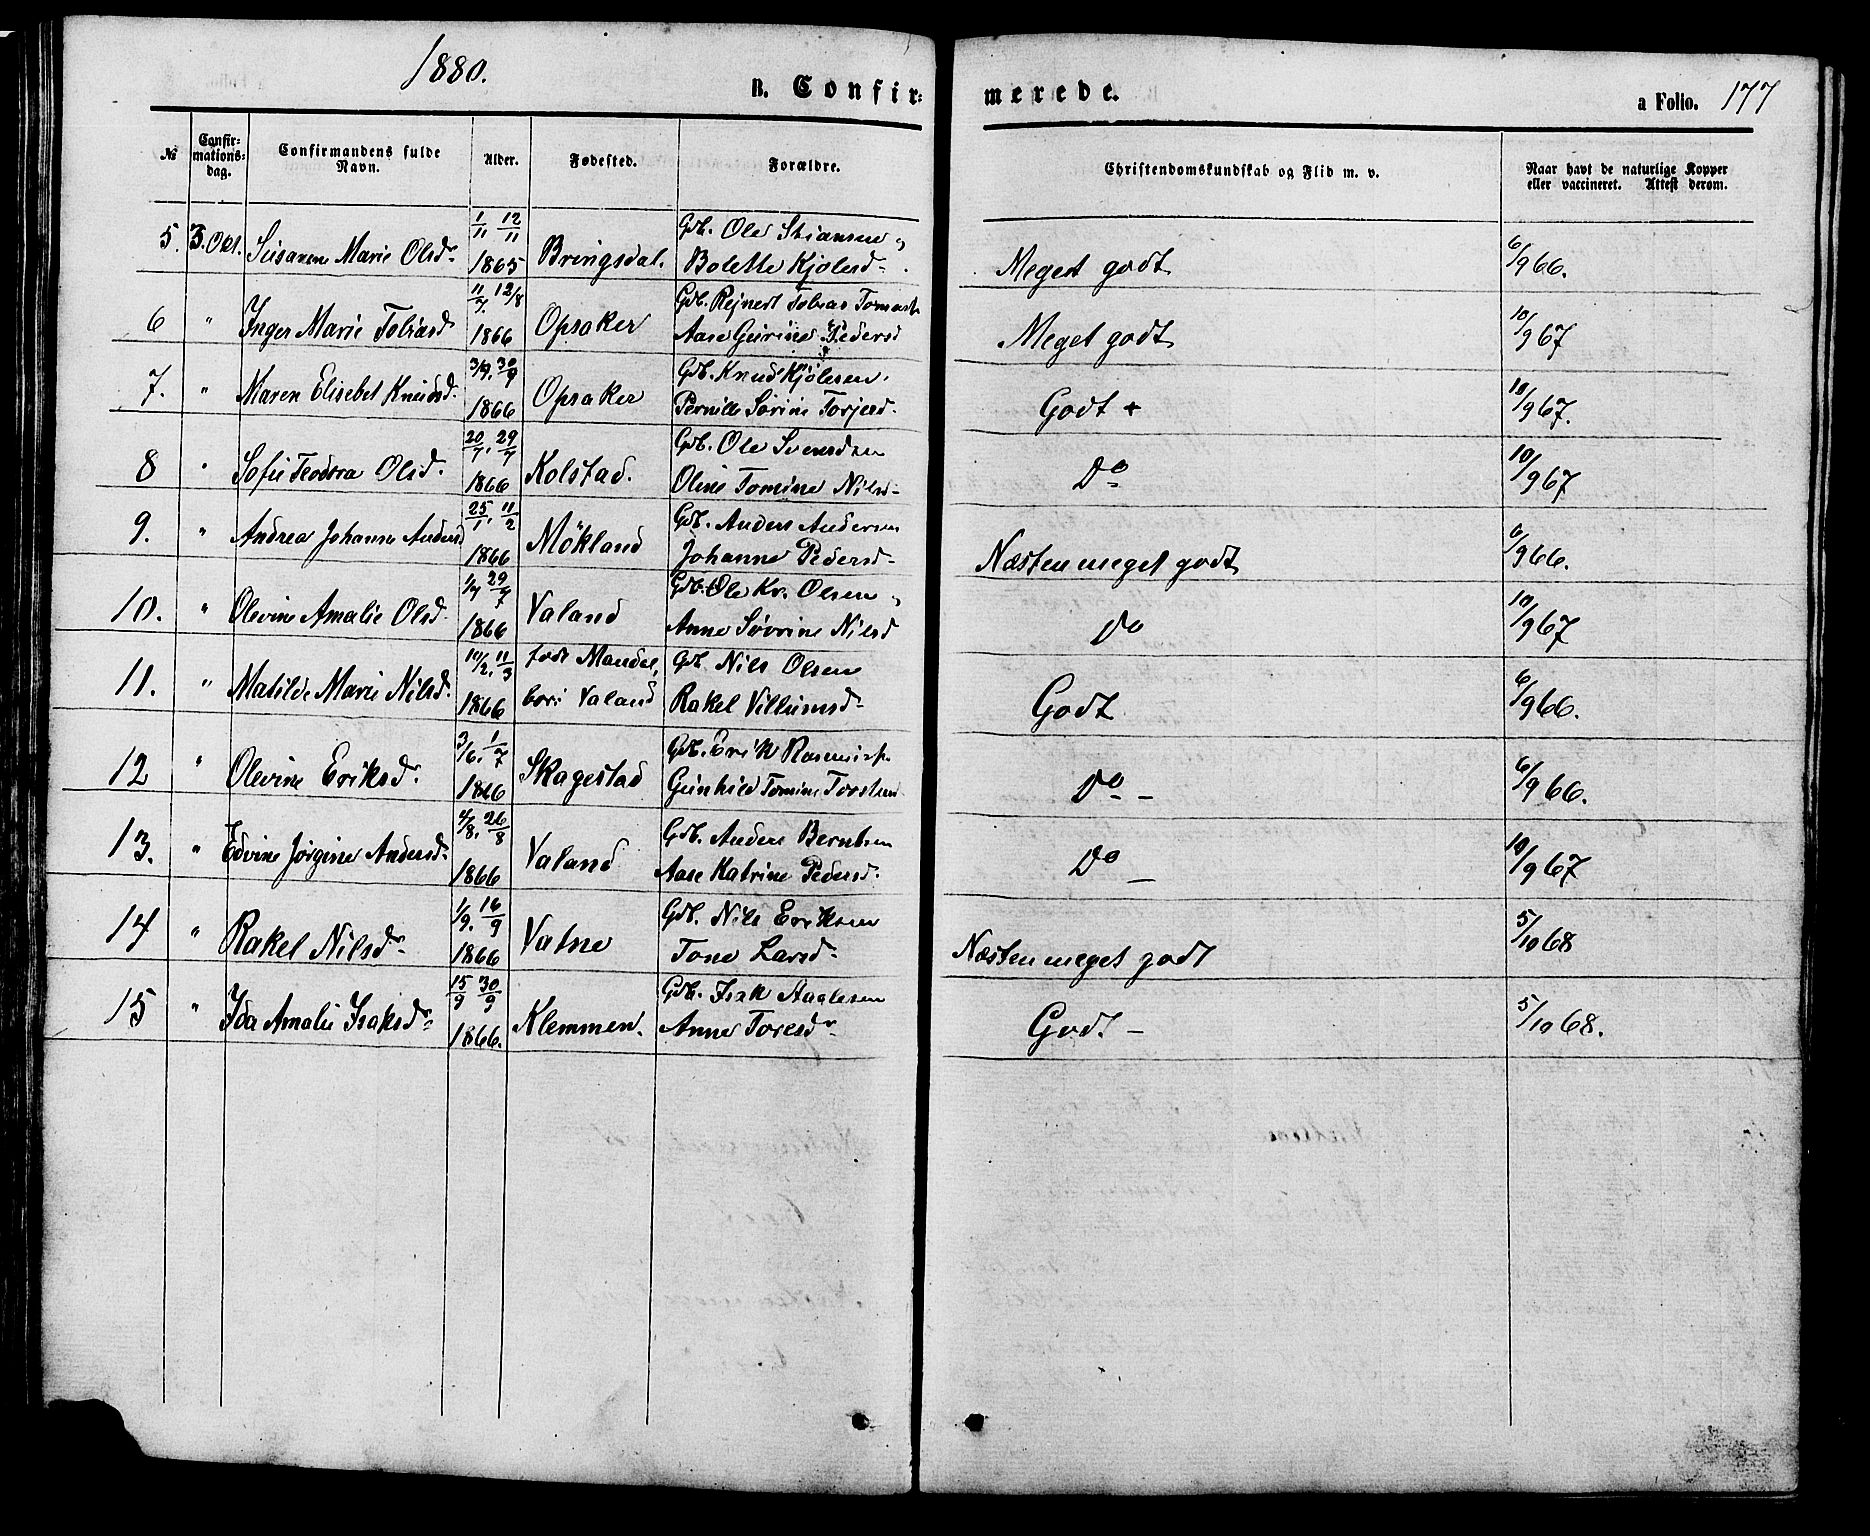 1880.
B. Confirmerede.
a Folio. 177
№ Confirmations-dag. Confirmandens fulde Navn. Alder. Fødested. Forældre. Christendomskundskab og Flid m. v. Naar havt de naturlige Kopper eller vaccineret. Attest derom.
1/11 12/11 Gdb. Ole Stiansen og
5. 3. Okt. Susanne Marie Olsdr. 1865 Bringsdal. Bolette Kjølesd. Meget godt 6/9 66.
11/7. 12/8 Gdb. Rejnert Tobias
6 " Inger Marie Tobiasd. 1866 Opsaker Aase Gurine Pedersd Meget godt 10/9 67
3/9. 30/9 Gdb. Knud Kjølesen.
7. " Maren Elisebet Knudsd. 1866 Opsaker Pernille Sørine Torjersd. Godt + 10/9 67.
20/7. 29/7 Gdb. Ole Svendsen
8 " Sofie Teodora Olsd. 1866 Kolstad. Oline Tomine Nilsd. Do 10/9 67
25/1. 11/2 Gdb. Anders Andersen
9. " Andrea Johanne Andersd 1866 Mökland Johanne Pedersd. Næsten meget godt 6/9 66.
1/7 29/7 Gdb. Ole Kr. Olsen og
10. " Olevine Amalie Olsd. 1866 Valand Anne Sövrine Nilsd Do 10/9 67
10/2. 11/3 født Mandal, Gdb Nils Olsen
11. " Matilde Marie Nilsd. 1866 bor: Valand Rakel Villumsd. Godt 6/9 66.
3/6. 1/7 Gdb. Erik
12 " Olevine Eriksd. 1866 Skagestad Gunhild Tomine Do 6/9 66.
4/8. 26/8 Gdb. Anders Berntsen
13. " Edvine Jørgine Andersd. 1866 Valand Aase Katrine Pedersd. Do 10/9 67
1/9. 16/9 Gdb. Nils Eriksen
14 " Rakel Nilsdr. 1866 Vatne Tone Larsd. Næsten meget godt 5/10 68
15/9 30/9 Gdb. Isak Aagesen
15 " Ida Amalie Isaksdr. 1866. Klemmen. Anne Toresdr. Godt 5/10 68.